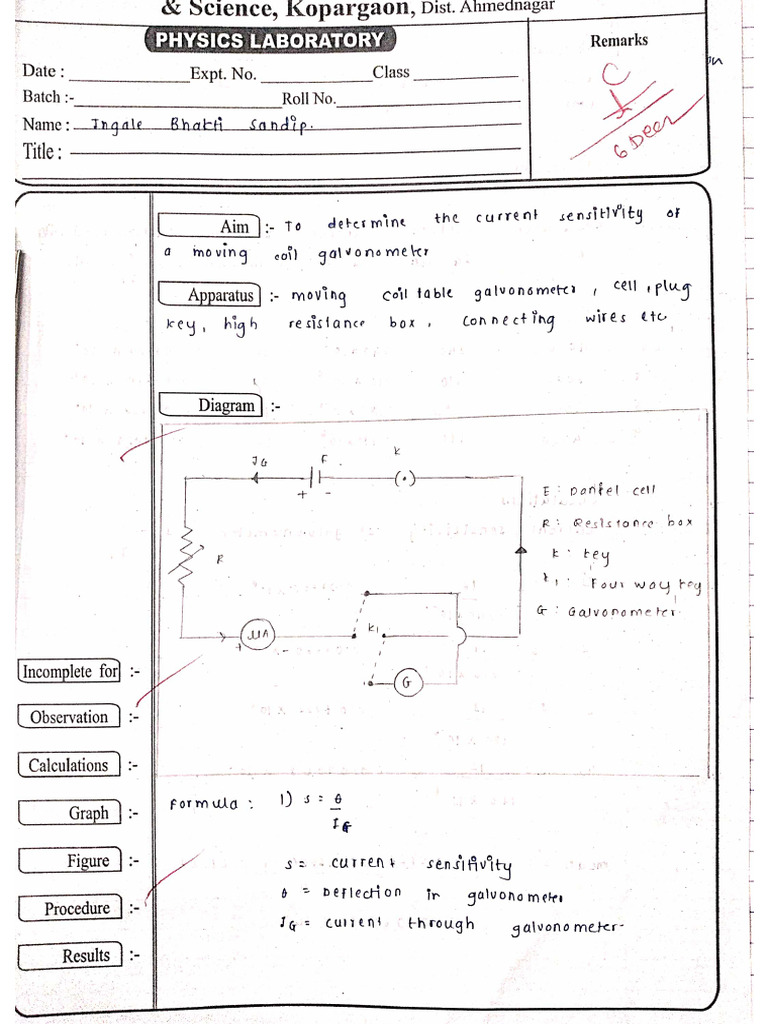 & Science, Kopargaon, Dist. Ahmednagar
PHYSICS LABORATORY
Remarks
Date : Expt. No. Class
Batch :- Roll No.
Name : Ingale Bhakti Sandip.
Title :
C
6 Dec
Aim :- To determine the current sensitivity of
a moving coil galvonometer
Apparatus :- moving coil table galvonometer, cell, plug
key, high resistance box, connecting wires etc
Diagram :-
IG E K
+ -
R
μA
+ -
K1
G
E : Daniel cell
R : Resistance box
K : key
K1 : Four way key
G : Galvonometer.
Incomplete for :-
Observation :-
Calculations :-
Graph :-
Figure :-
Procedure :-
Results :-
Formula : 1) s = θ
IG
s = current sensitivity
θ = Deflection in galvonometer
IG = current through galvonometer.